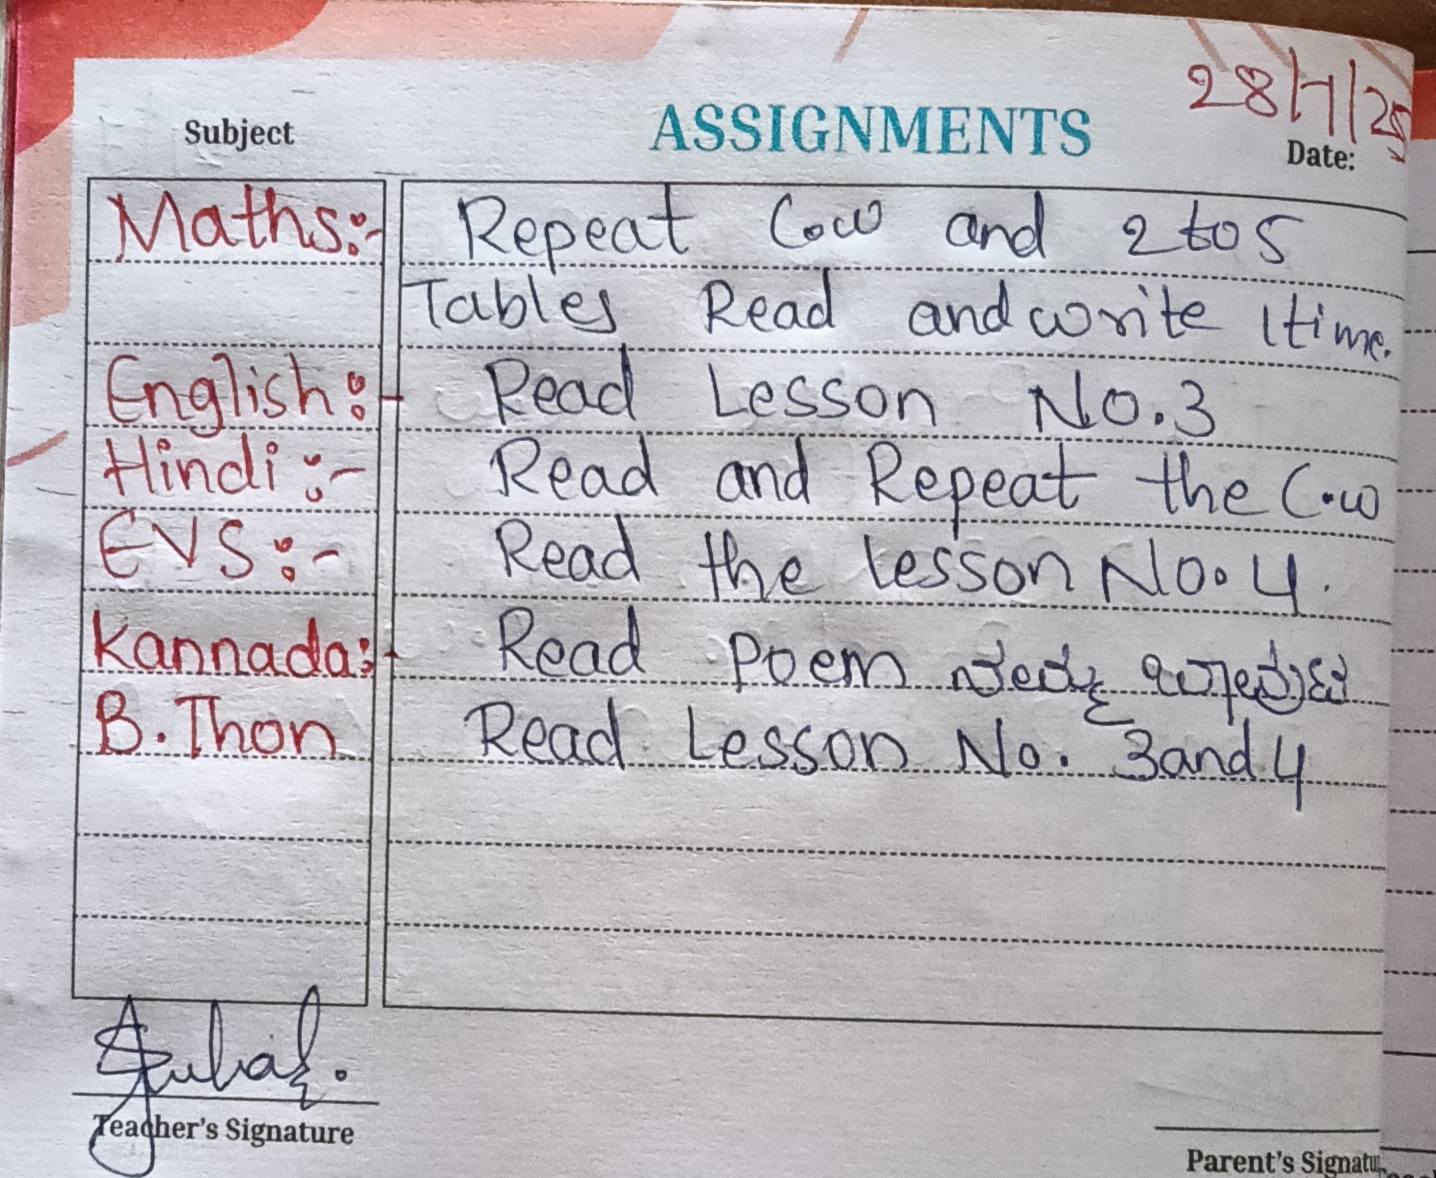 28/7/25
Subject ASSIGNMENTS Date:
Maths:- Repeat C.w and 2 to 5
Tables Read and write 1 time.
English:- Read Lesson No.3
Hindi:- Read and Repeat the C.w
EVS:- Read the lesson No. 4.
Kannada:- Read Poem
B. Thon Read Lesson No. 3 and 4
Teacher's Signature
Parent's Signatu